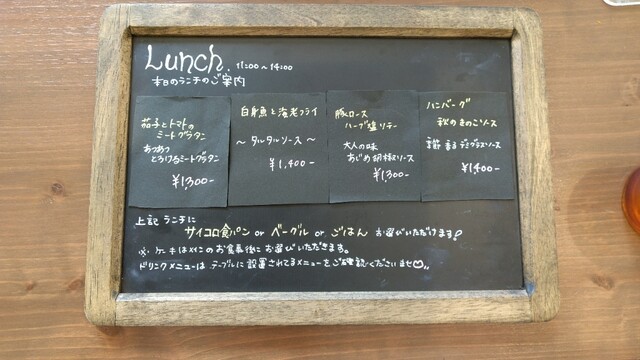 Lunch. 11:00～14:00
本日のランチのご案内
茄子とトマトの
ミートグラタン
あつあつ
とろけるミートグラタン
¥1,300-
白身魚と海老フライ
～タルタルソース～
¥1,400-
豚ロース
ハーブ塩ソテー
大人の味
あじめ胡椒ソース
¥1,300-
ハンバーグ
秋のきのこソース
香るデミグラスソース
¥1,400-
上記ランチに
サイコロ食パン or ベーグル or ごはん お選びいただけます!
※ケーキはメインのお食事後にお選びいただきます。
ドリンクメニューはテーブルに設置されてるメニューをご確認くださいませ